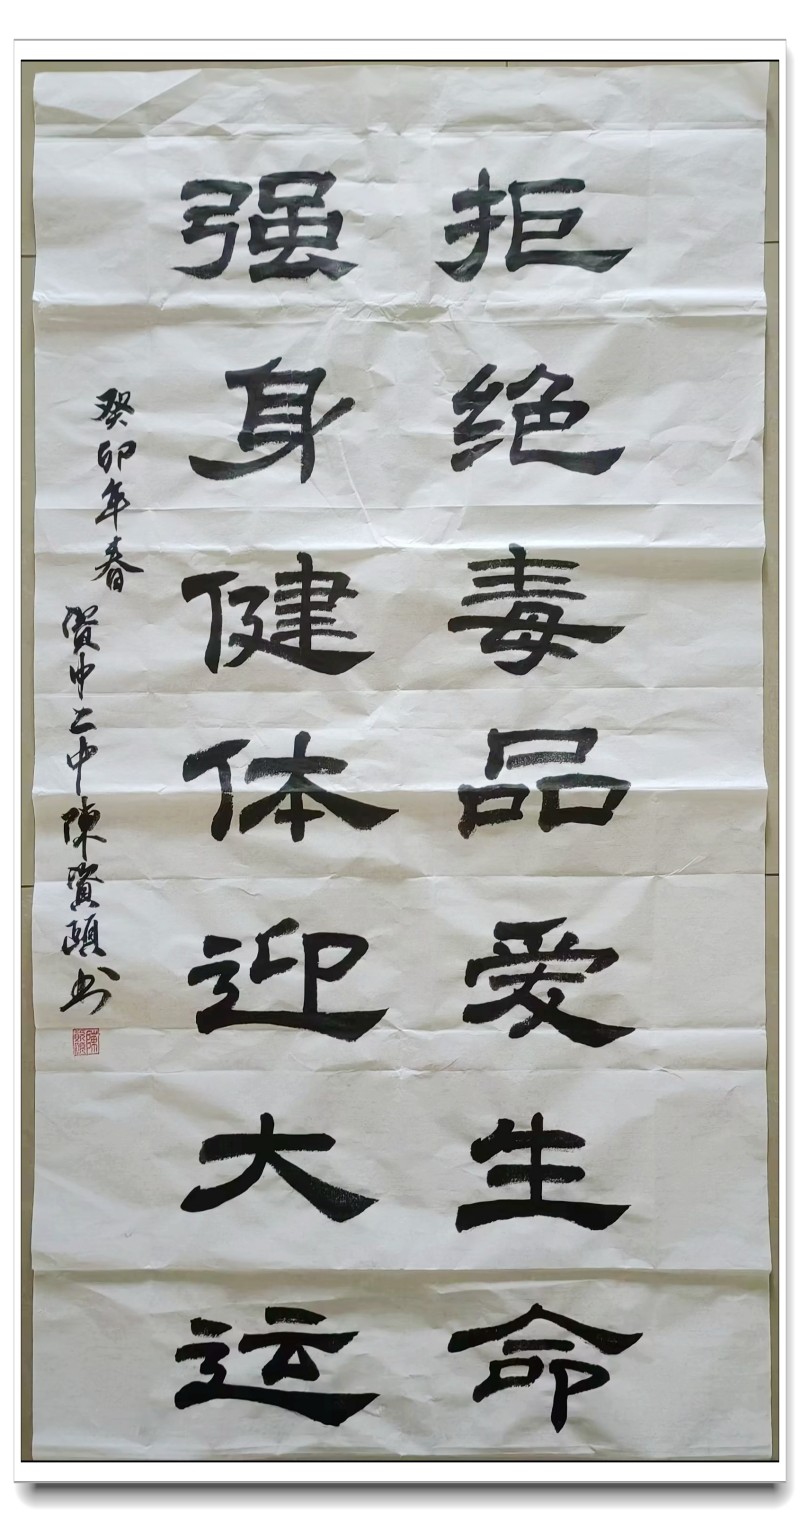 拒绝毒品爱生命
强身健体迎大运
癸卯年春
资中二中陳賢頤书